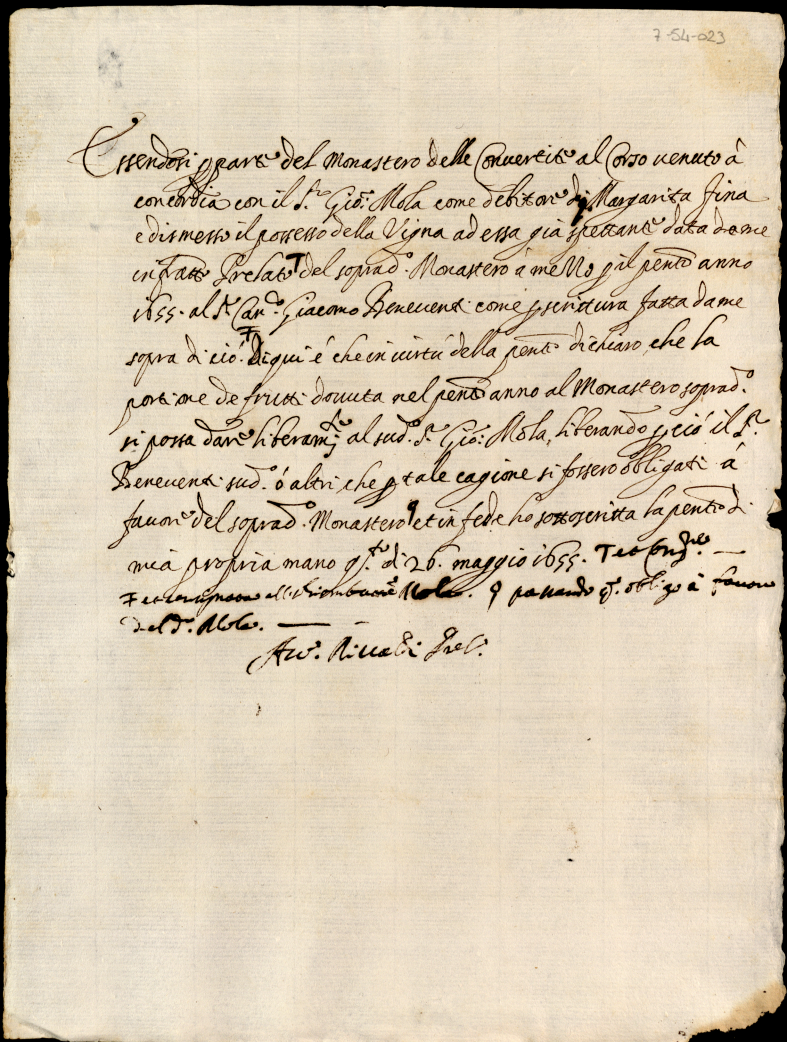 7-54-023
Essendosi p parte del Monastero delle Convertite al Corso venuto à
concordia con il S.r Gio: Mola come debitore di Margarita fina
e dismesso il possesso della Vigna ad essa già spettante data da me
infratto Prelato del soprad.o Monastero à p il pent.e anno
1655. al S.r Can.co Giacomo Beneventi come p scrittura fatta da me
sopra di ciò. Di qui é che in virtù della pent.e dichiaro, che la
portione de frutti dovuta nel pent.e anno al Monastero soprad.o
si possa dare liberam.te al sud.o S.r Gio: Mola, liberando p ciò il S.r
Beneventi sud.o ó altri, che p tale cagione si fossero obbligati à
favore del soprad.o Monastero et in fede ho sottoscritta la pent.e di
mia propria mano q.to dì 26. maggio 1655.
Mola. passando q.to obligo à favore
del d.o Mola.
Rivaldi Prel.